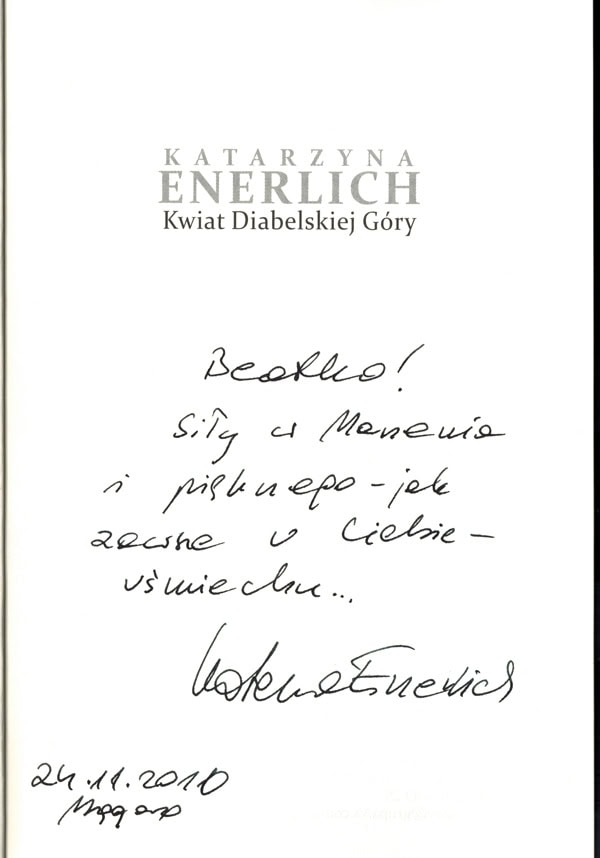 KATARZYNA
ENERLICH
Kwiat Diabelskiej Góry
Beatko!
Siły w Marzenia
i pięknego - jak
zawsze u Ciebie -
uśmiechu...
Katarzyna Enerlich
24.11.2010